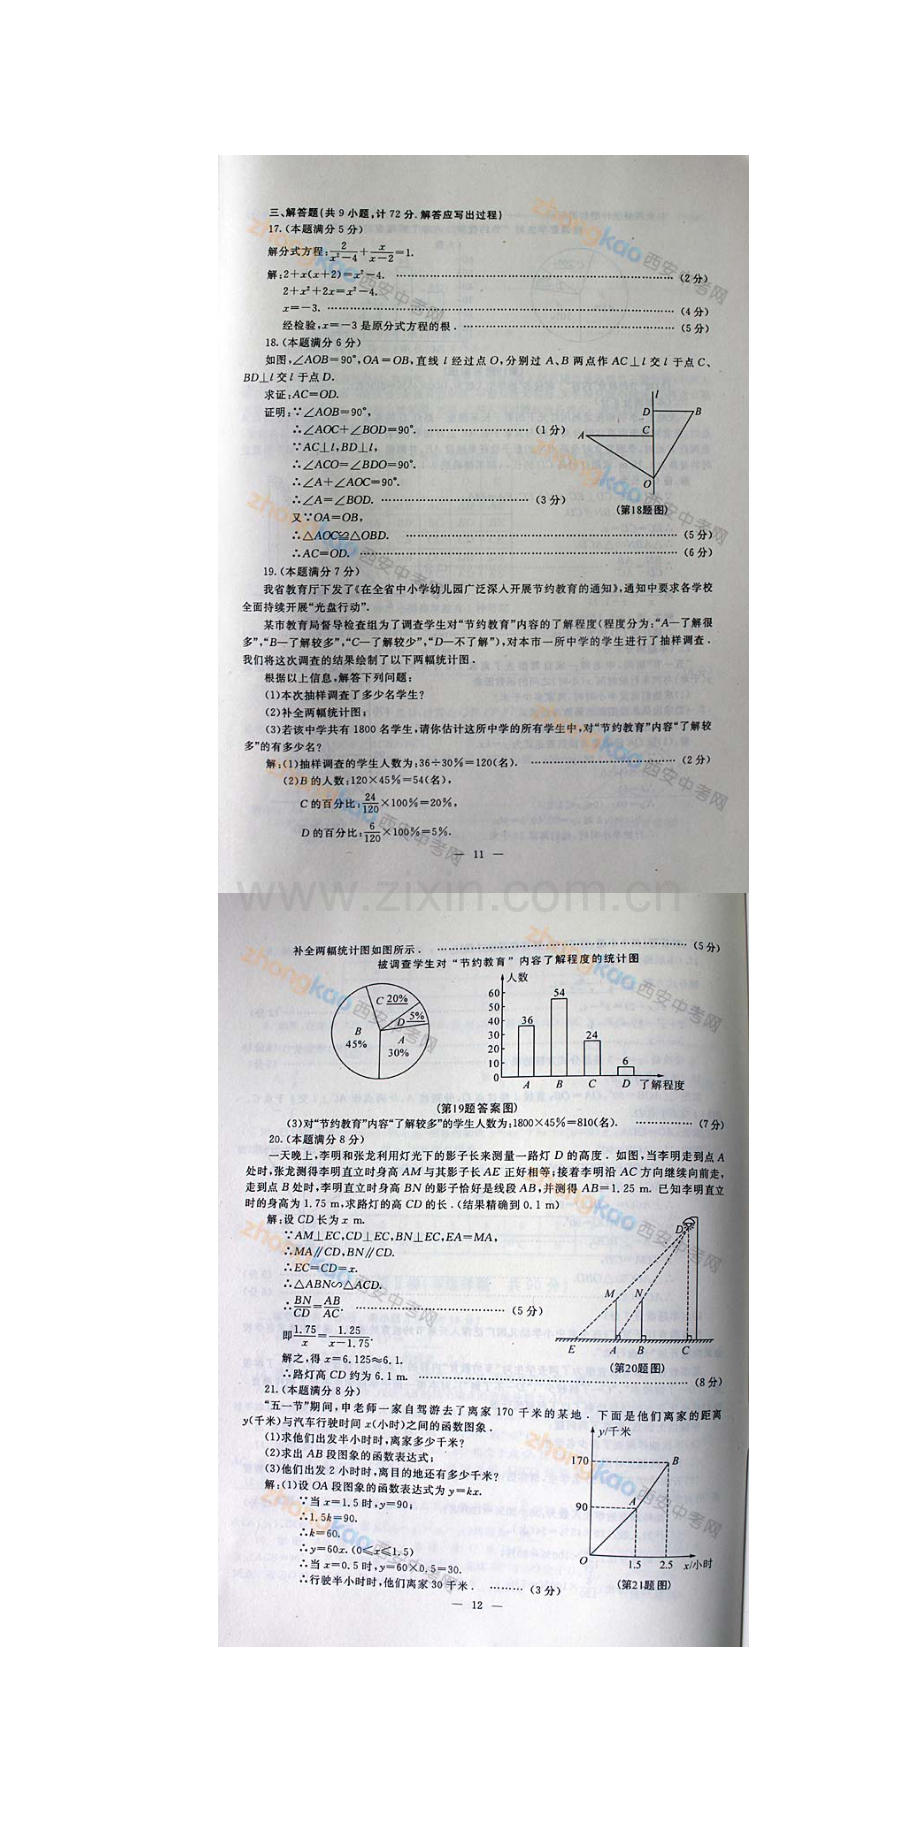 三、解答题(共9小题,计72分.解答应写出过程)
17.(本题满分5分)
解分式方程:2/(x²-4)+x/(x-2)=1.
解:2+x(x+2)=x²-4. ………(2分)
2+x²+2x=x²-4.
x=-3. ………(4分)
经检验,x=-3是原分式方程的根. ………(5分)
18.(本题满分6分)
如图,∠AOB=90°,OA=OB,直线l经过点O,分别过A、B两点作AC⊥l交l于点C、
BD⊥l交l于点D.
求证:AC=OD.
证明:∵∠AOB=90°,
∴∠AOC+∠BOD=90°. ………(1分)
∵AC⊥l,BD⊥l,
∴∠ACO=∠BDO=90°.
∴∠A+∠AOC=90°.
∴∠A=∠BOD. ………(3分)
又∵OA=OB,
∴△AOC≌△OBD. ………(5分)
∴AC=OD. ………(6分)
l
D
B
C
A
O
(第18题图)
19.(本题满分7分)
我省教育厅下发了《在全省中小学幼儿园广泛深入开展节约教育的通知》,通知中要求各学校
全面持续开展“光盘行动”.
某市教育局督导检查组为了调查学生对“节约教育”内容的了解程度(程度分为:“A—了解很
多”,“B—了解较多”,“C—了解较少”,“D—不了解”),对本市一所中学的学生进行了抽样调查.
我们将这次调查的结果绘制了以下两幅统计图.
根据以上信息,解答下列问题:
(1)本次抽样调查了多少名学生?
(2)补全两幅统计图;
(3)若该中学共有1800名学生,请你估计这所中学的所有学生中,对“节约教育”内容“了解较
多”的有多少名?
解:(1)抽样调查的学生人数为:36÷30%=120(名). ………(2分)
(2)B的人数:120×45%=54(名),
C的百分比:24/120×100%=20%,
D的百分比:6/120×100%=5%.
— 11 —
www.zixin.com.cn
补全两幅统计图如图所示. ………(5分)
被调查学生对“节约教育”内容了解程度的统计图
C 20%
D 5%
B
45%
A
30%
人数
60
50
40
30
20
10
0
36
54
24
6
A B C D 了解程度
(第19题答案图)
(3)对“节约教育”内容“了解较多”的学生人数为:1800×45%=810(名). ………(7分)
20.(本题满分8分)
一天晚上,李明和张龙利用灯光下的影子长来测量一路灯D的高度.如图,当李明走到点A
处时,张龙测得李明直立时身高AM与其影子长AE正好相等;接着李明沿AC方向继续向前走,
走到点B处时,李明直立时身高BN的影子恰好是线段AB,并测得AB=1.25 m.已知李明直立
时的身高为1.75 m,求路灯的高CD的长.(结果精确到0.1 m)
解:设CD长为x m.
∵AM⊥EC,CD⊥EC,BN⊥EC,EA=MA,
∴MA∥CD,BN∥CD.
∴EC=CD=x.
∴△ABN∽△ACD.
∴BN/CD=AB/AC. ………(5分)
即1.75/x=1.25/(x-1.75).
解之,得x=6.125≈6.1.
∴路灯高CD约为6.1 m. ………(8分)
D
M N
E A B C
(第20题图)
21.(本题满分8分)
“五一节”期间,申老师一家自驾游去了离家170千米的某地.下面是他们离家的距离
y(千米)与汽车行驶时间x(小时)之间的函数图象.
(1)求他们出发半小时时,离家多少千米?
(2)求出AB段图象的函数表达式;
(3)他们出发2小时时,离目的地还有多少千米?
解:(1)设OA段图象的函数表达式为y=kx.
∵当x=1.5时,y=90;
∴1.5k=90.
∴k=60.
∴y=60x.(0≤x≤1.5)
∴当x=0.5时,y=60×0.5=30.
∴行驶半小时时,他们离家30千米. ………(3分)
y/千米
170
B
90
A
O
1.5 2.5 x/小时
(第21题图)
— 12 —
zhongkao西安中考网